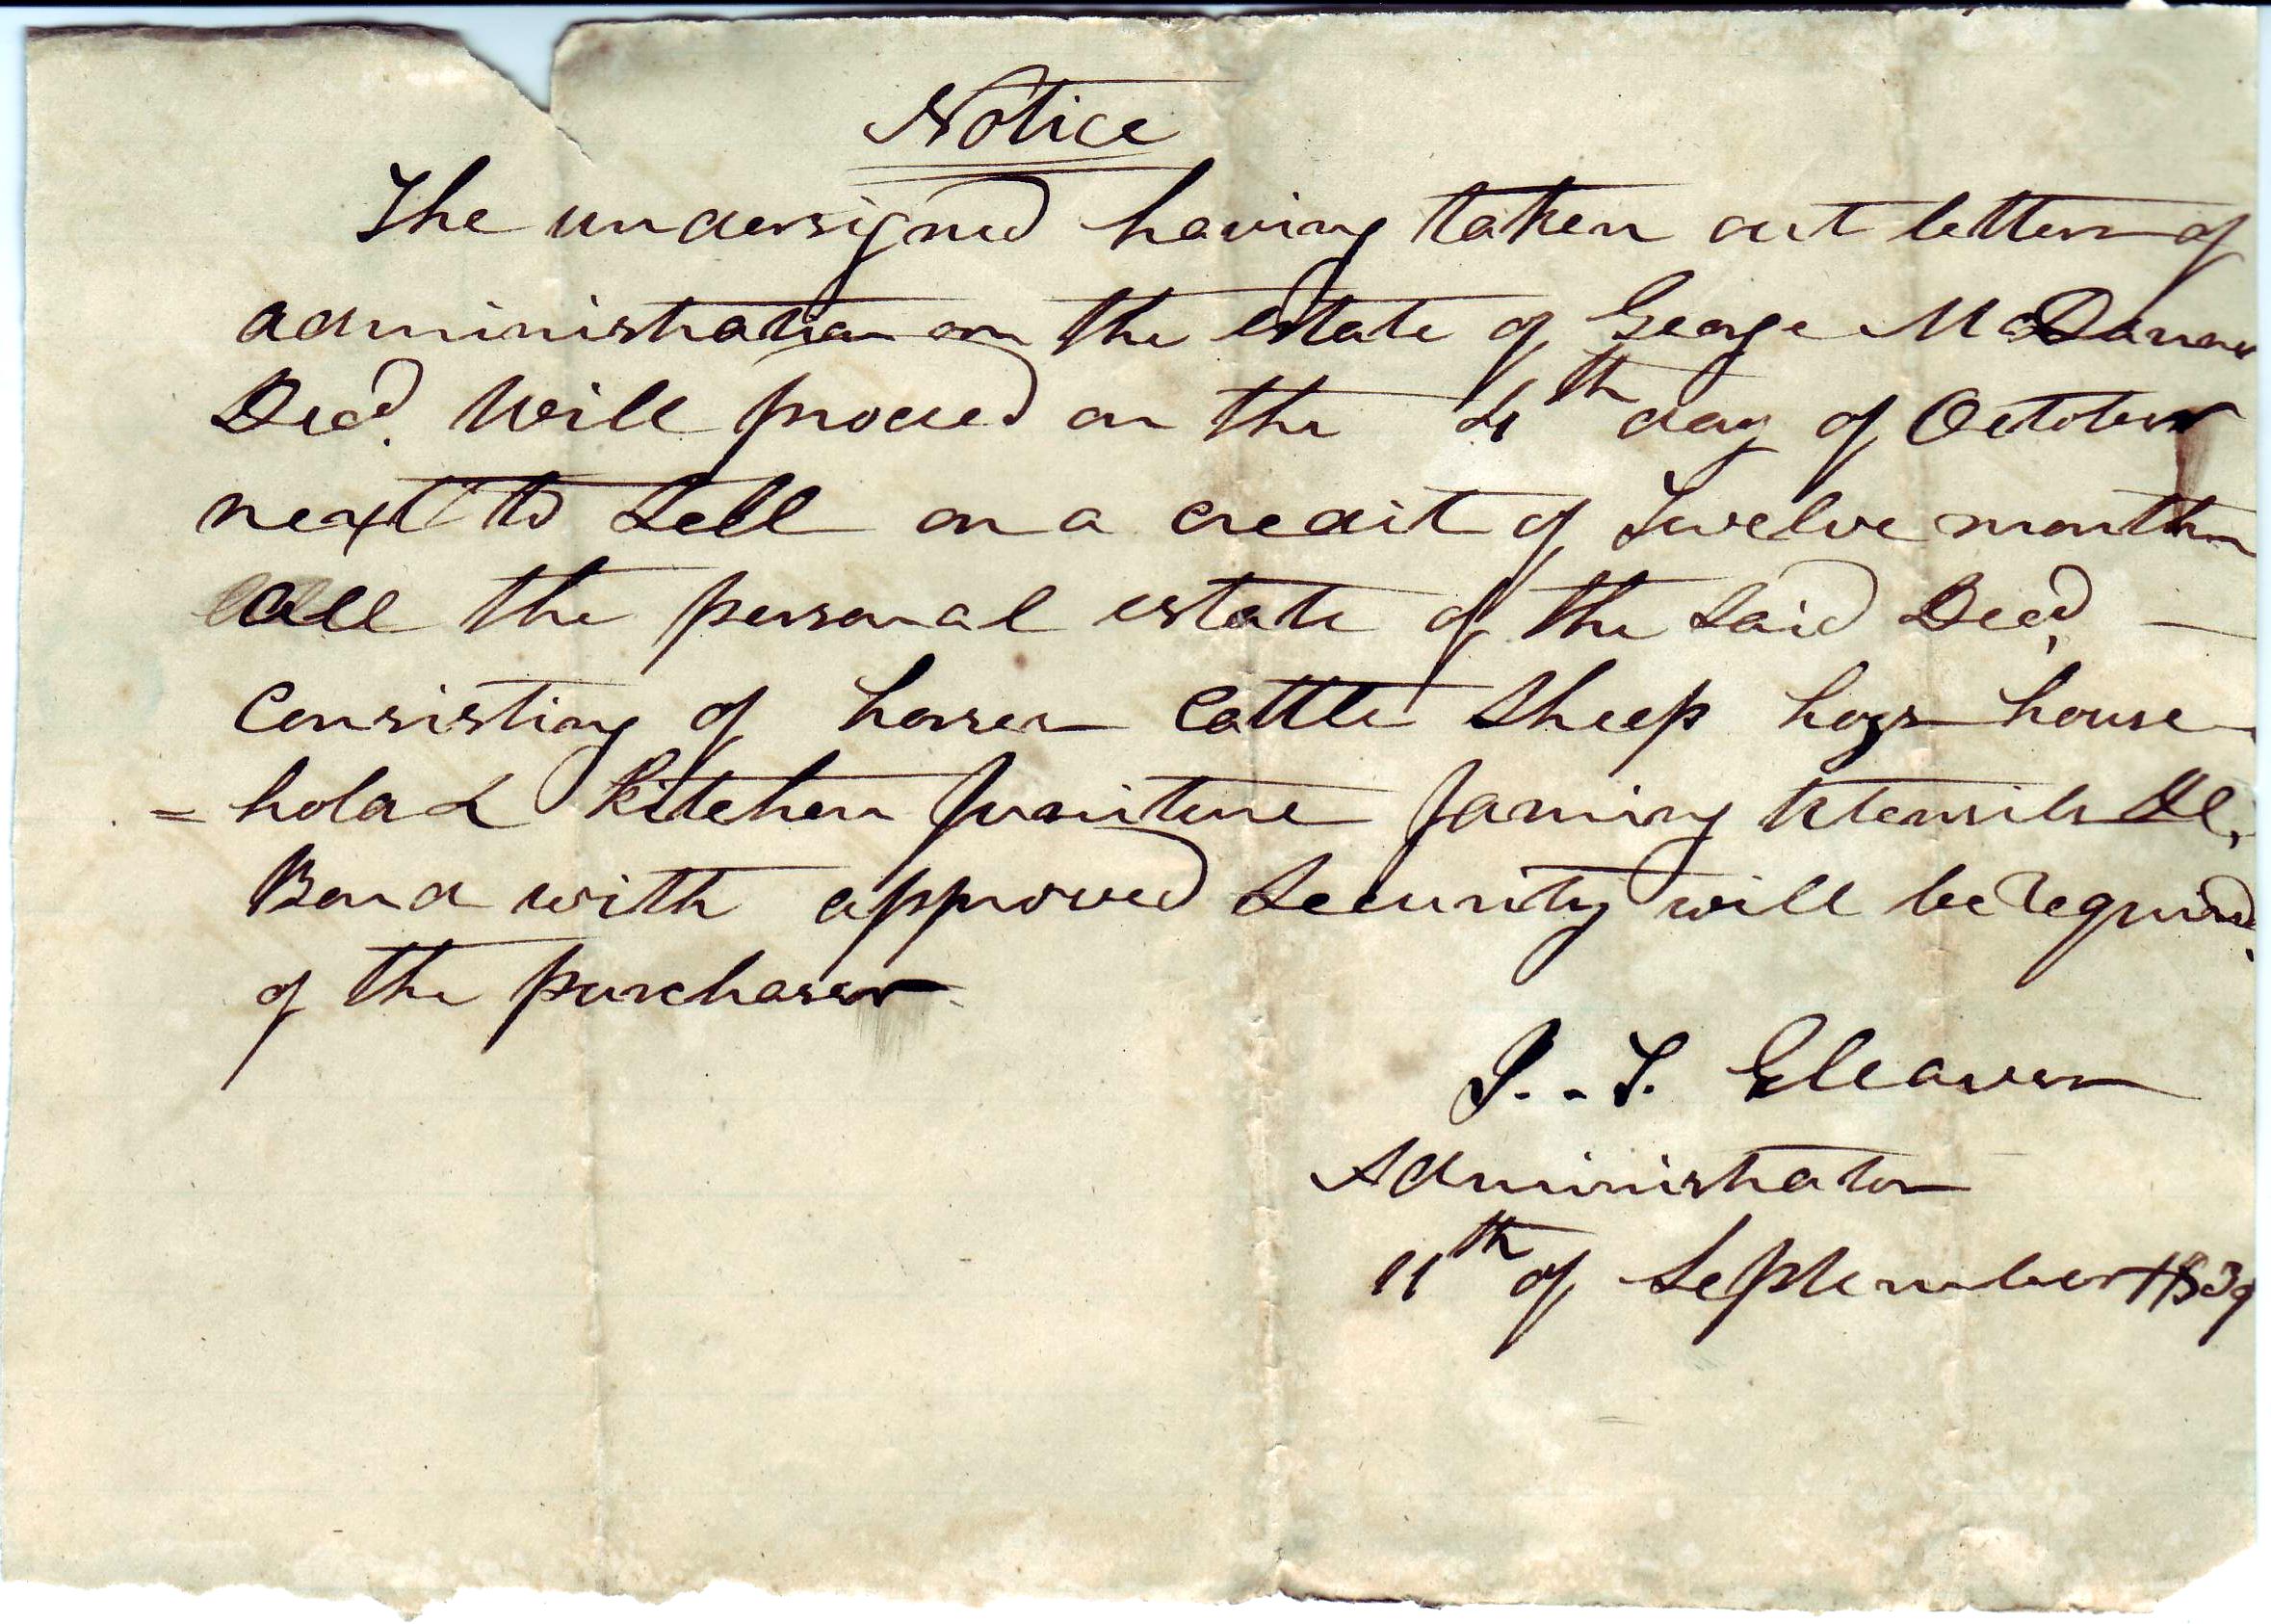 Notice
The undersigned having taken out letters of
administration on the estate of George
Decd. Will proceed on the 4th day of October
next to Sell on a credit of Twelve months
all the personal estate of the Said Decd, —
Consisting of horses Cattle Sheep hogs house
= hold & Kitchen furniture farming utensils &c,
Bond with approved Security will be required
of the purchaser
J. . T. Gleaves
Administrator
11th of September 1839